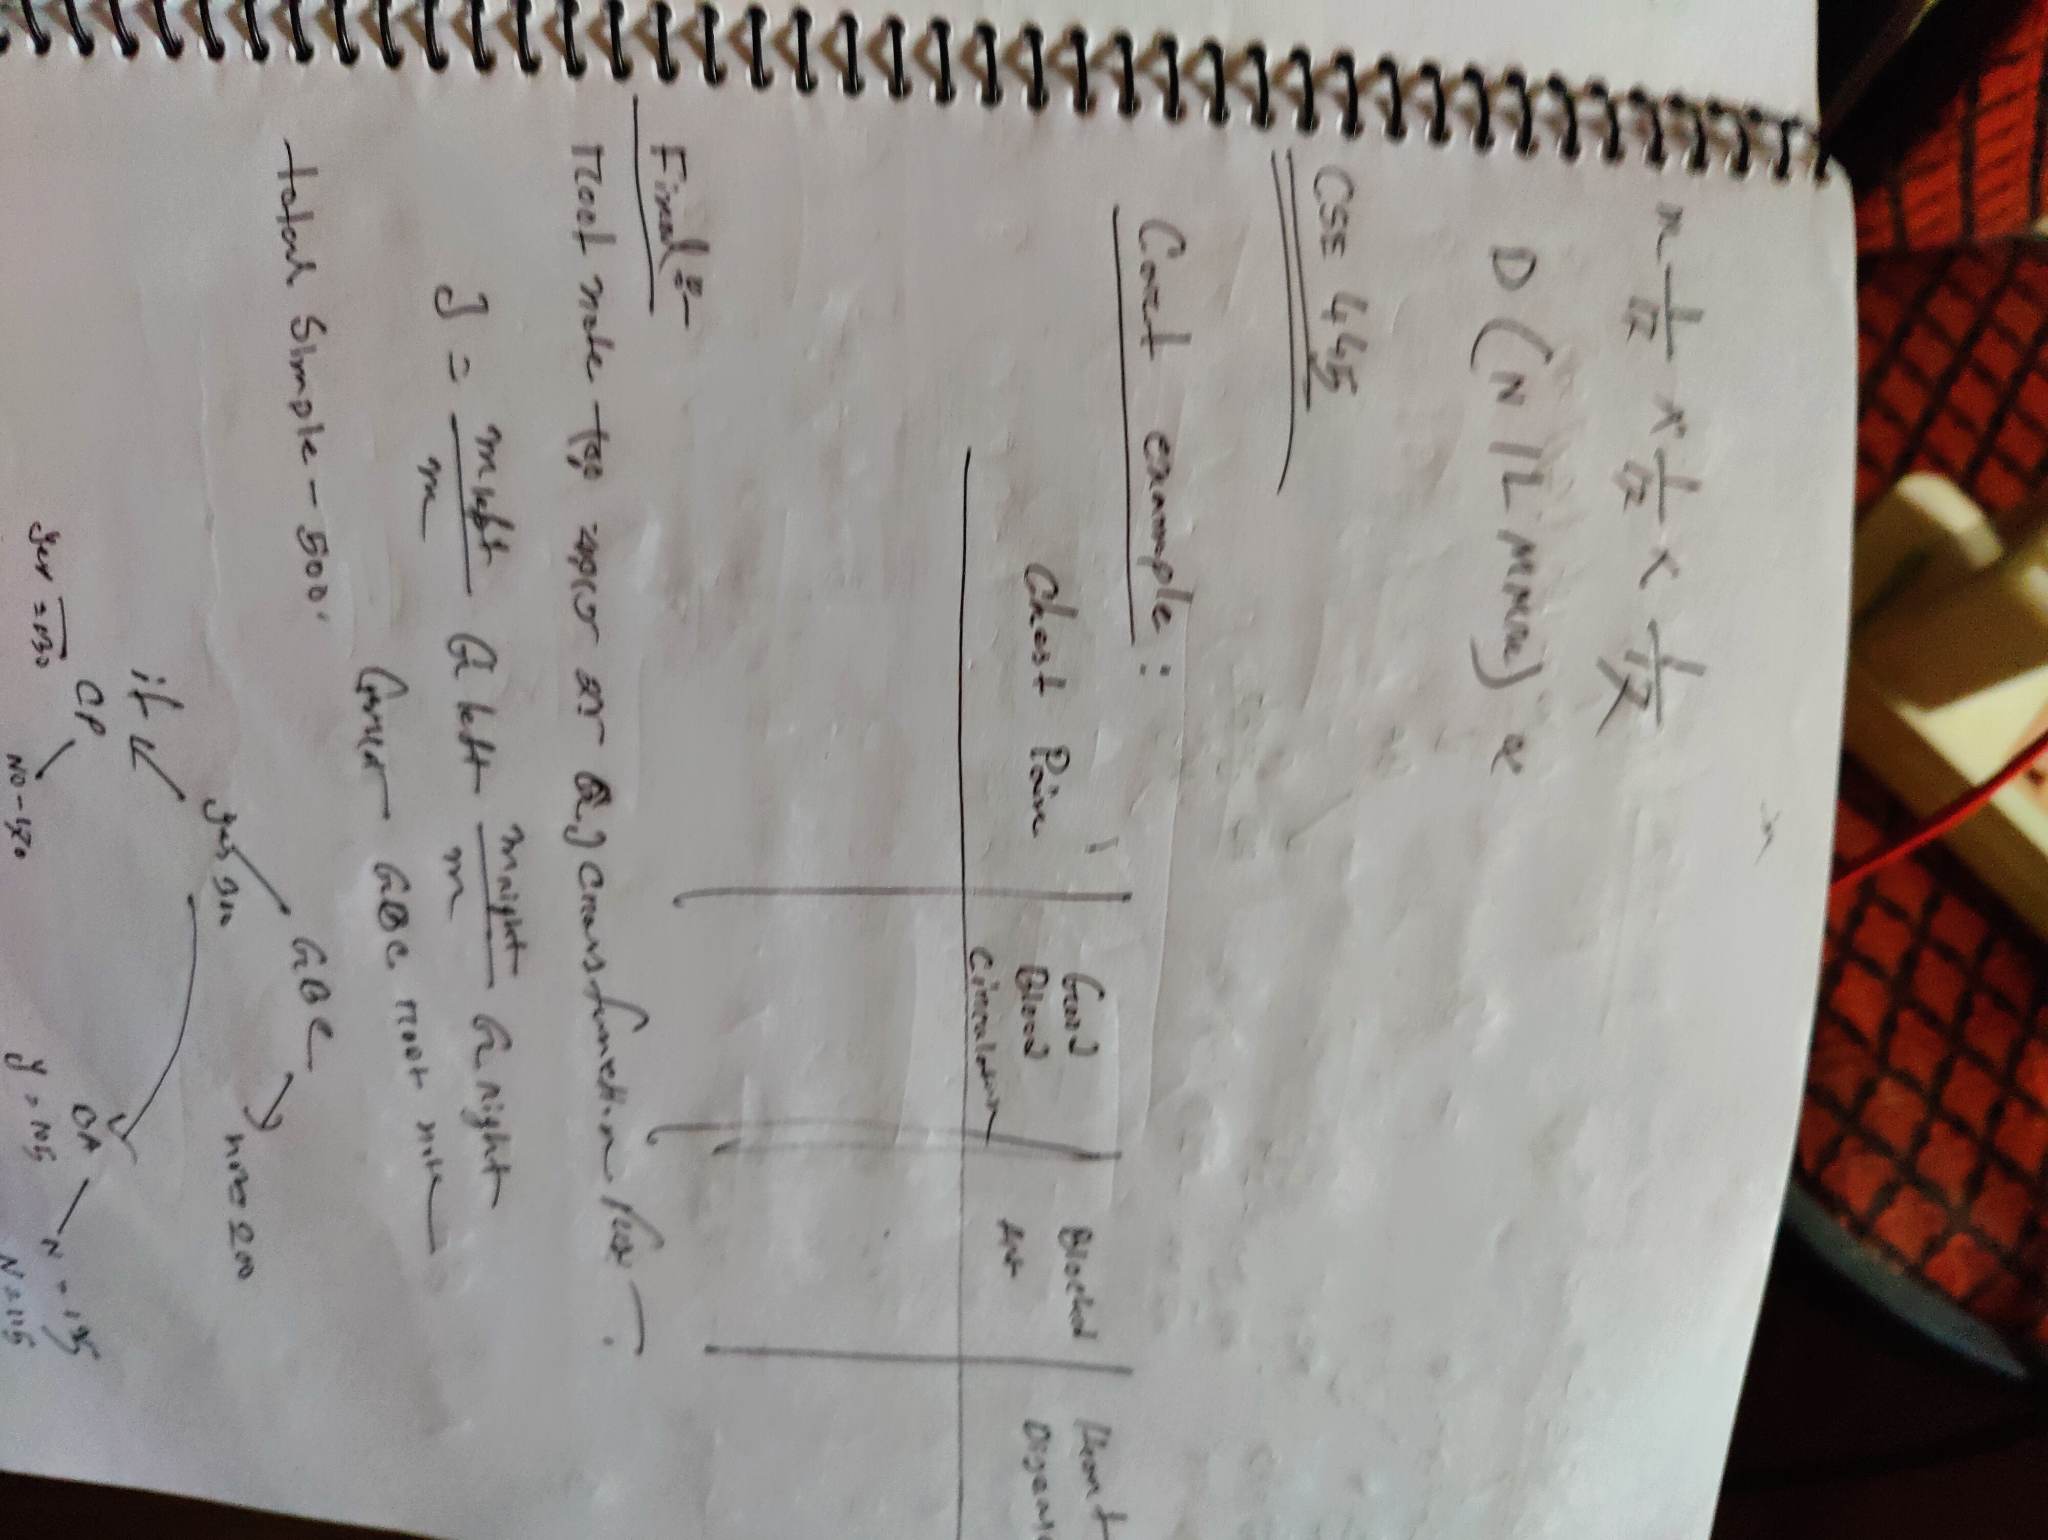 1/12 × 1/12 × 1/12
D (N | L
CSE 445
Cart example :
Chest Pain | Good Blood Circulation | Blocked Art | Heart Disease
Final :-
Root note
J = m left / m G left m right / m G right
GBC root note
total Simple - 500.
GBC
yes 300 no = 200
if
CP BA
yes = 130 NO - 170 y = 105 N = 195
N = 115